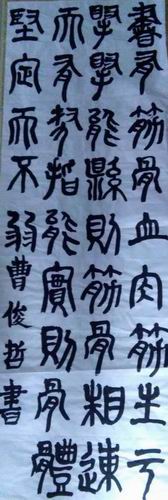 書有筋骨血肉筋生于
掔掔能縣則筋骨相連
而有勢指能實則骨體
堅定而不弱曹俊哲書